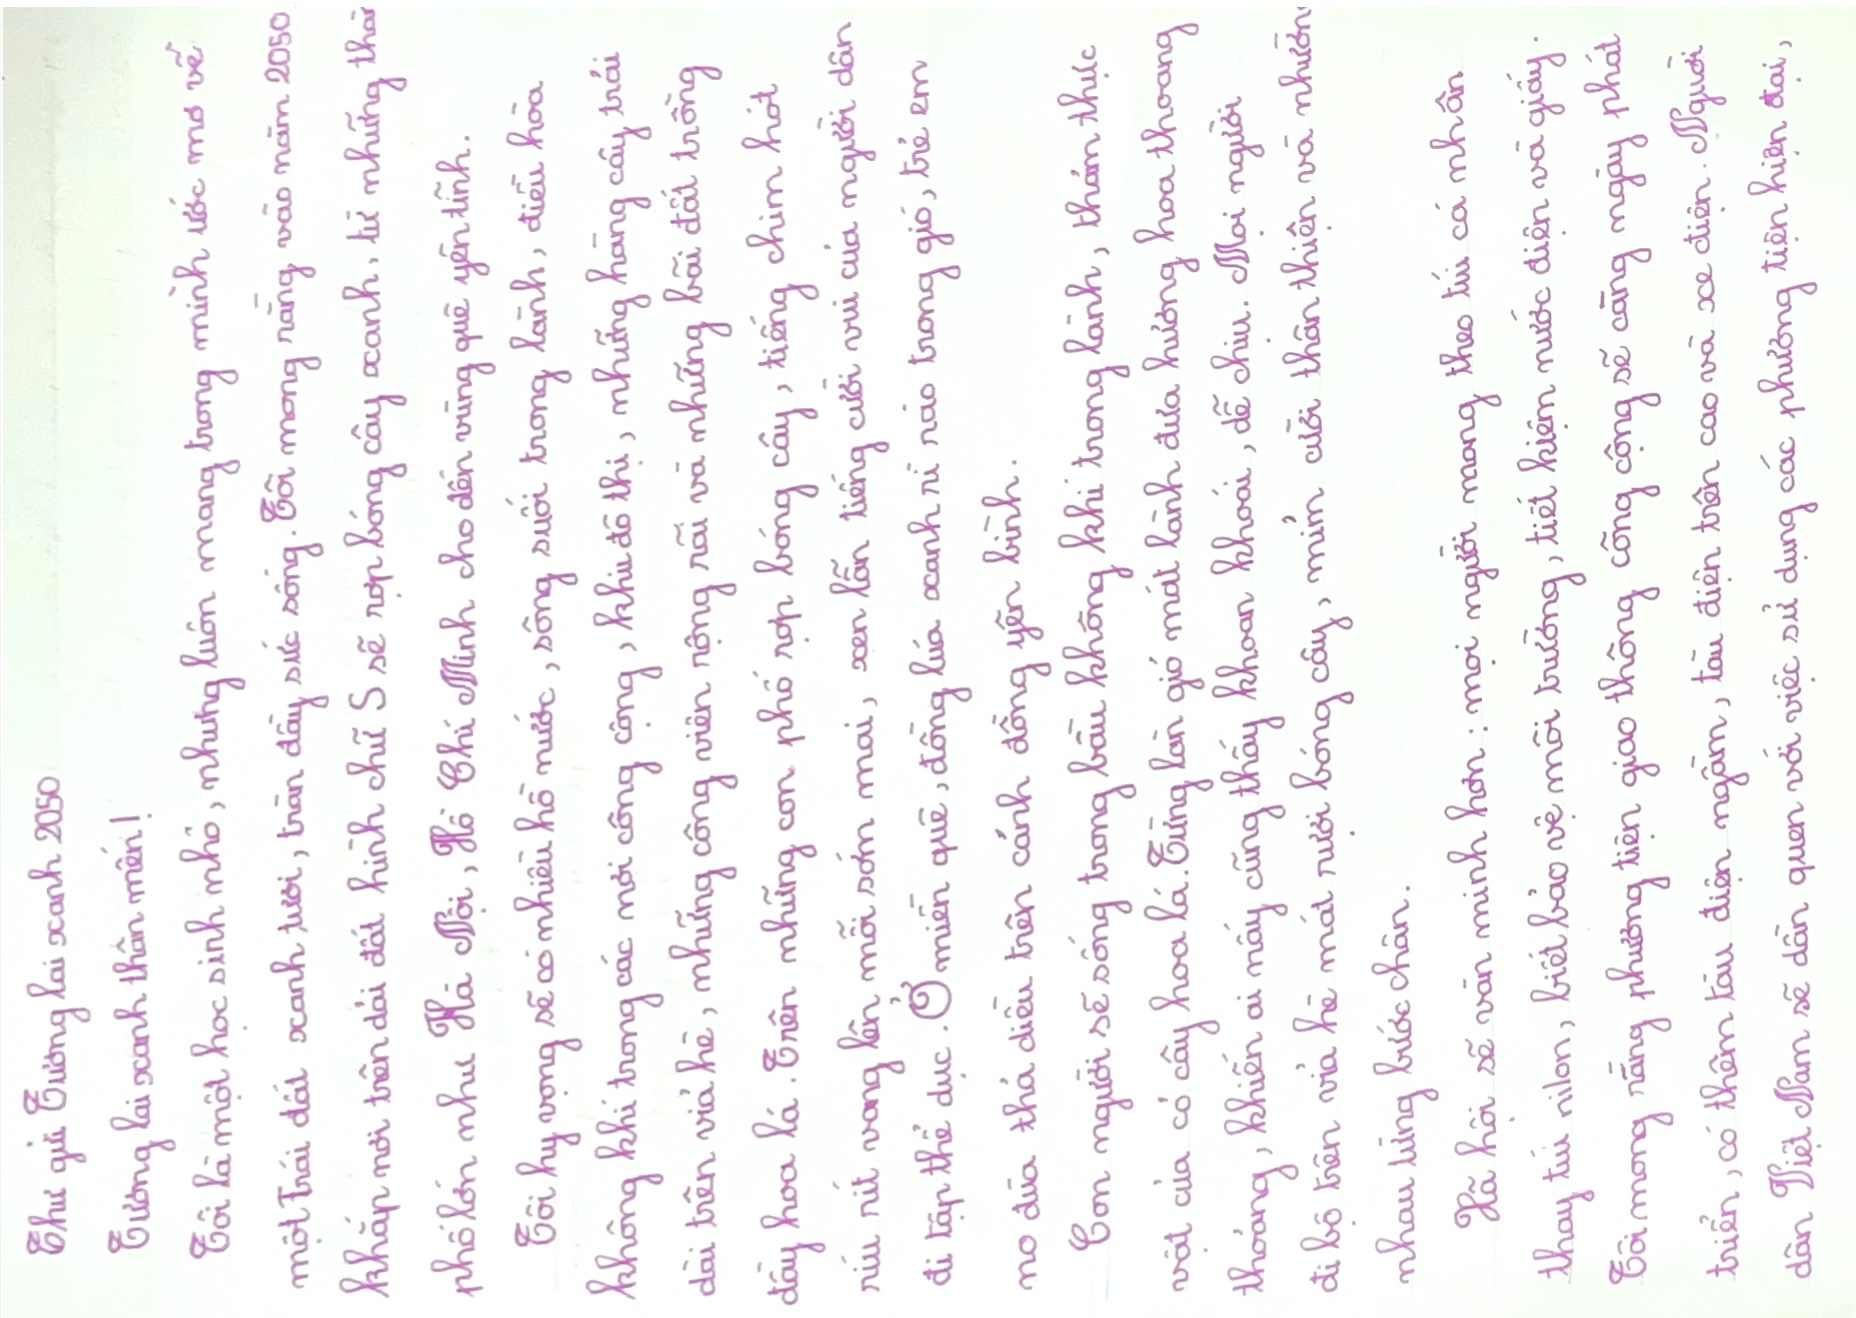 Thư gửi Tương lai xanh 2050
Tương lai xanh thân mến!
Tôi là một học sinh nhỏ, nhưng luôn mang trong mình ước mơ về
một Trái đất xanh tươi, tràn đầy sức sống. Tôi mong rằng vào năm 2050
khắp nơi trên dải đất hình chữ S sẽ rợp bóng cây xanh, từ những thà
phố lớn như Hà Nội, Hồ Chí Minh cho đến vùng quê yên tĩnh.
Tôi hy vọng sẽ có nhiều hồ nước, sông suối trong lành, điều hòa
không khí trong các nơi công cộng, khu đô thị, những hàng cây trải
dài trên vỉa hè, những công viên rộng rãi và những bãi đất trồng
đầy hoa lá. Trên những con phố rợp bóng cây, tiếng chim hót
ríu rít vang lên mỗi sớm mai, xen lẫn tiếng cười vui của người dân
đi tập thể dục. Ở miền quê, đồng lúa xanh rì rào trong gió, trẻ em
nô đùa thả diều trên cánh đồng yên bình.
Con người sẽ sống trong bầu không khí trong lành, thảm thực
vật của cỏ cây hoa lá. Từng làn gió mát lành đưa hương hoa thoang
thoảng, khiến ai nấy cũng thấy khoan khoái, dễ chịu. Mọi người
đi bộ trên vỉa hè mát rười bóng cây, mỉm cười thân thiện và nhường
nhau từng bước chân.
Xã hội sẽ văn minh hơn: mọi người mang theo túi cá nhân
thay túi nilon, biết bảo vệ môi trường, tiết kiệm nước điện và giấy.
Tôi mong rằng phương tiện giao thông công cộng sẽ càng ngày phát
triển, có thêm tàu điện ngầm, tàu điện trên cao và xe điện. Người
dân Việt Nam sẽ dần quen với việc sử dụng các phương tiện hiện đại,